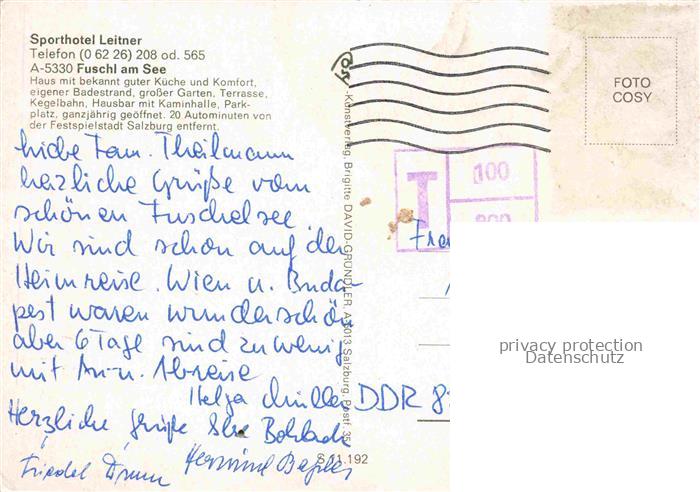 Sporthotel Leitner
Telefon (0 62 26) 208 od. 565
A-5330 Fuschl am See
Haus mit bekannt guter Küche und Komfort,
eigener Badestrand, großer Garten, Terrasse,
Kegelbahn, Hausbar mit Kaminhalle, Park-
platz, ganzjährig geöffnet. 20 Autominuten von
der Festspielstadt Salzburg entfernt.
liebe Fam. Theilmann
herzliche Grüße vom
schönen Fuschelsee.
Wir sind schon auf der
Heimreise. Wien u. Buda-
pest waren wunderschön
aber 6 Tage sind zu wenig
mit An- u. Abreise
Helga Müller
Herzliche Grüße
Friedel
S 11.192
Kunstverlag, Brigitte DAVID-GRÜNDLER, A-5013 Salzburg, Postf. 35
FOTO
COSY
T
100
DDR 8
privacy protection
Datenschutz